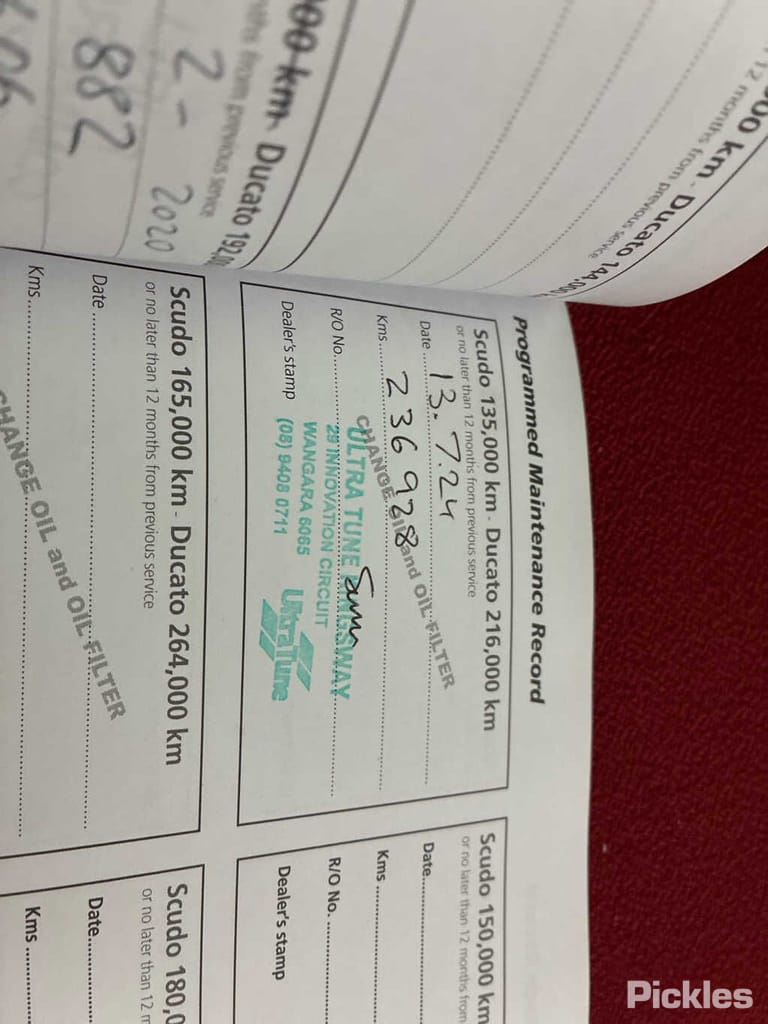 12 months from previous service
000 km - Ducato 144,000
or no later
00 km - Ducato 192,00
nths from previous service
2 - 2020
882
06
Programmed Maintenance Record
Scudo 135,000 km - Ducato 216,000 km
or no later than 12 months from previous service
Date 13.7.24
Kms 236 928
CHANGE OIL and OIL FILTER
R/O No.
Dealer's stamp
ULTRA TUNE KINGSWAY
29 INNOVATION CIRCUIT
WANGARA 6065
(08) 9408 0711
UltraTune
Scudo 150,000 km
or no later than 12 months from
Date
Kms
R/O No.
Dealer's stamp
Scudo 165,000 km - Ducato 264,000 km
or no later than 12 months from previous service
Date
Kms
CHANGE OIL and OIL FILTER
Scudo 180,0
or no later than 12 m
Date
Kms
Pickles